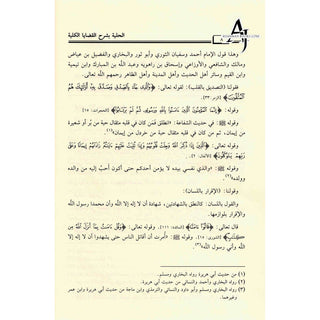 الحلية بشرح القضايا الكلية
وهذا قول الإمام أحمد وسفيان الثوري وأبو ثور والبخاري والفضيل بن عياض
ومالك والشافعي والأوزاعي وإسحاق بن راهويه وعبد الله بن المبارك وابن تيمية
وابن القيم وسائر أهل الحديث وأهل المدينة وأهل الظاهر رحمهم الله تعالى.
فقولنا (التصديق بالقلب): لقوله تعالى: ﴿وَالَّذِي جَاءَ بِالصِّدْقِ وَصَدَّقَ بِهِ أُولَئِكَ هُمُ
الْمُتَّقُونَ﴾ [الزمر: ٣٣]
﴿إِنَّمَا الْمُؤْمِنُونَ الَّذِينَ آمَنُوا بِاللَّهِ وَرَسُولِهِ ثُمَّ لَمْ يَرْتَابُوا﴾ [الحجرات: ١٥]
وقوله: ﷺ في حديث الشفاعة: «انطلق فمن كان في قلبه مثقال حبة من بُر أو شعيرة
من إيمان، ثم من كان في قلبه مثقال حبة من خردل من إيمان»(١)
وقوله تعالى: ﴿الَّذِينَ إِذَا ذُكِرَ اللَّهُ وَجِلَتْ قُلُوبُهُمْ وَإِذَا تُلِيَتْ عَلَيْهِمْ آيَاتُهُ زَادَتْهُمْ إِيمَانًا وَعَلَى
رَبِّهِمْ يَتَوَكَّلُونَ﴾ [الأنفال: ٢]
وقوله: ﷺ «والذي نفسي بيده لا يؤمن أحدكم حتى أكون أحبَّ إليه من والده
وولده»(٢)
وقولنا: (الإقرار باللسان):
فالقول باللسان: كالنطق بالشهادتين، شهادة أن لا إله إلا الله وأن محمدا رسول الله
والإقرار بلوازمها.
قال تعالى: ﴿وَقُلْ آمَنْتُ بِمَا أَنْزَلَ اللَّهُ مِنْ
كِتَابٍ﴾ [الشورى: ١٥]، وقوله ﷺ: «أمرت أن أقاتل الناس حتى يشهدوا أن لا إله
إلا الله وأني رسول الله»(٣)
(١) من حديث أبي هريرة رواه البخاري ومسلم.
(٢) رواه البخاري وأحمد والنسائي من حديث أبي هريرة.
(٣) رواه البخاري ومسلم وأبو داود والنسائي والترمذي وابن ماجة من حديث أبي هريرة وابن عمر
وغيرهما.